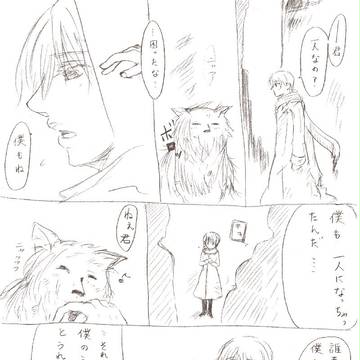 …君
一人なの?
ニャア
ボロ
…困ったな…
僕もね
僕も
一人になっちゃっ
たんだ……
ねぇ君
ニャッフフ
…それ
僕のこ
とうれ
誰も
僕